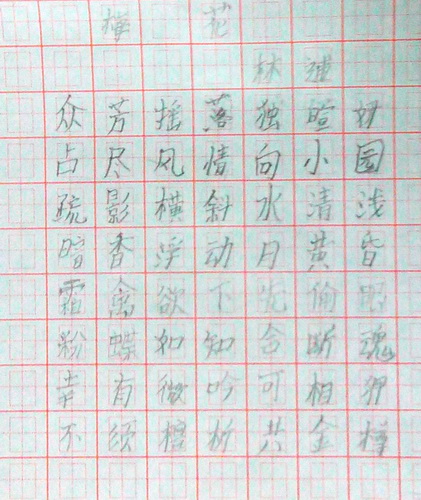 梅花
林逋
众芳摇落独暄妍
占尽风情向小园
疏影横斜水清浅
暗香浮动月黄昏
霜禽欲下先偷眼
粉蝶如知合断魂
幸有微吟可相狎
不须檀板共金樽